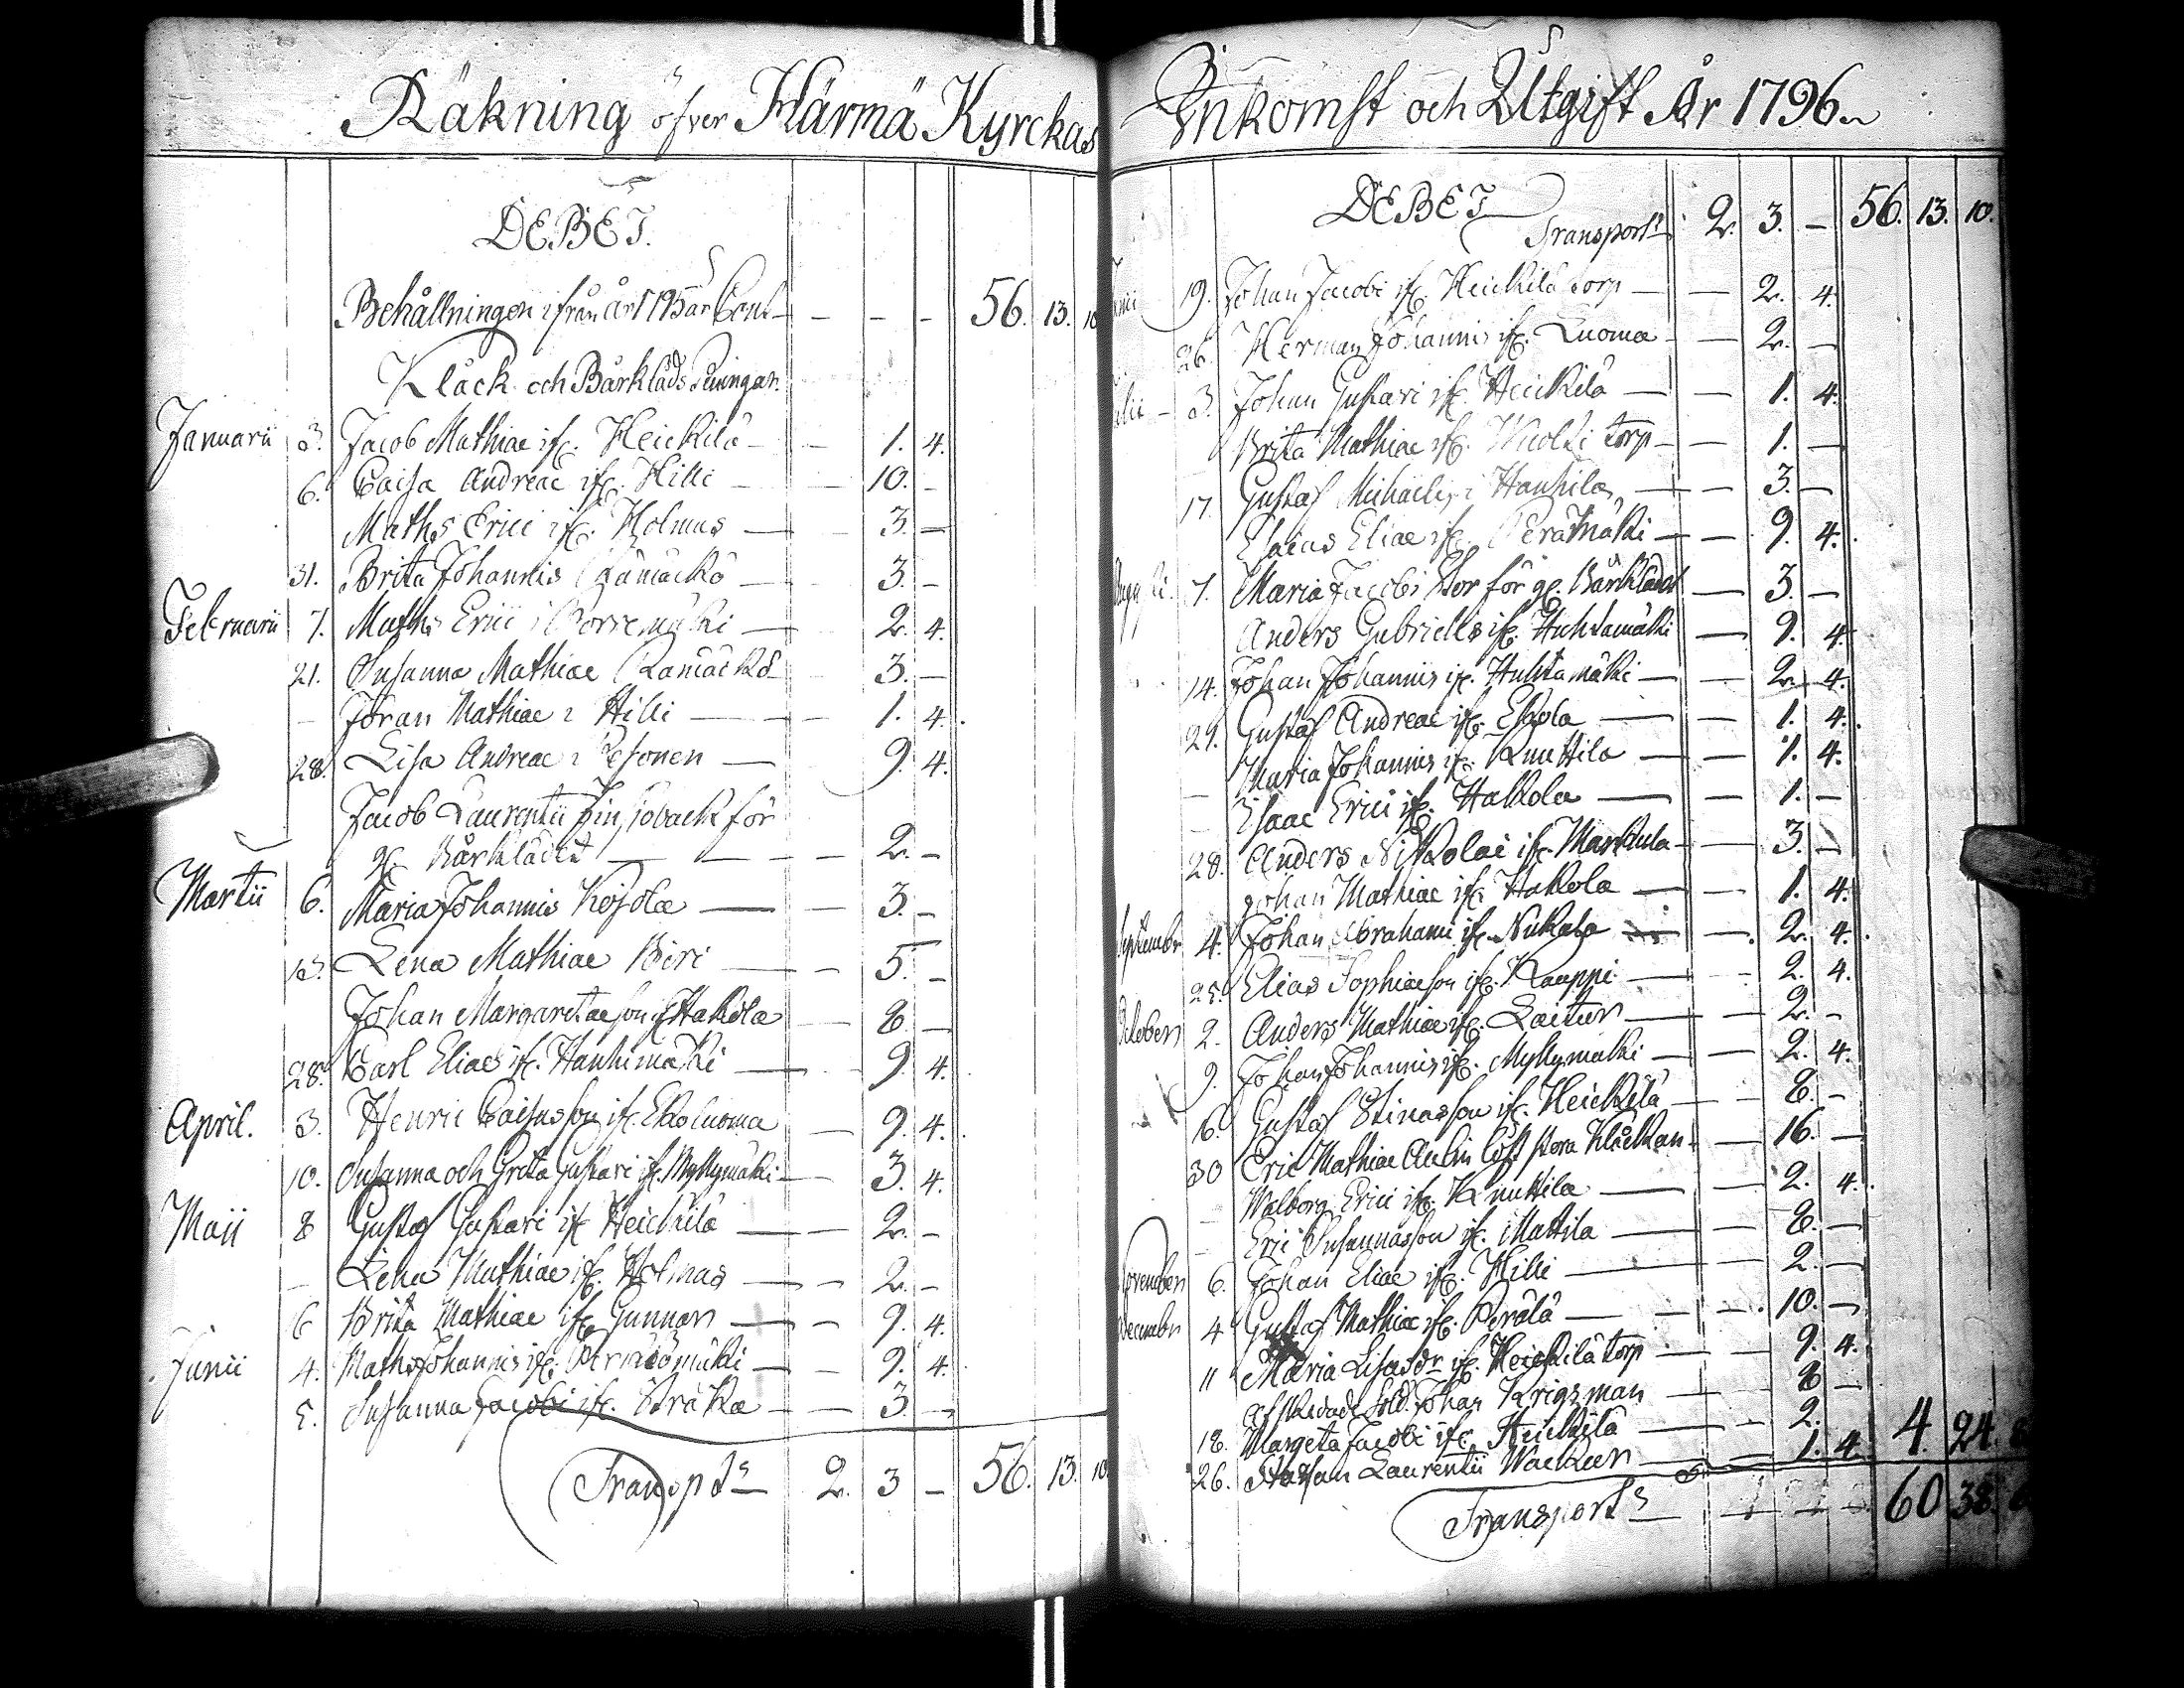 Räkning öfver Härmä Kyrckas
DEBET.
Behållningen ifrån år 1795 är Cont — — — — 56. 13. 10
Klåck och Bårklåds Ringar.
Januarii 3. Jacob Mathiae ifr. Heickilä — — 1. 4.
6. Caisa Andreae ifr. Hilli — — 10. —
Maths Erici ifr. Holmas — — 3. —
31. Brita Johannis Rämäckö — 3. —
Februarii 7. Maths Erici i Porremäki — 2. 4.
21. Susanna Mathiae Rämäckö — 3. —
— Jöran Mathiae i Hilli — — 1. 4.
28. Lisa Andreae i Pesonen — 9. 4.
Jacob Laurentii Finsjoback för
gr. Bårklädet — — — — 2. —
Martii 6. Maria Johannis Kojola — — 3. —
13. Lena Mathiae Biri — — 5. —
Johan Margaretaeson ifr Hakola — 8. —
28. Carl Eliae ifr. Hanhimäki — — 9. 4.
April. 3. Henric Caisasson ifr. Ekoluoma — 9. 4.
10. Susanna och Greta Gustavi ifr. Myllymäki — 3. 4.
Maji 8 Gustaf Gustavi ifr Heickilä — — 2. —
— Lena Mathiae ifr. Holmas — — 2. —
6 Brita Mathiae ifr. Gunnar — — 9. 4.
Junii 4. Maths Johannis ifr. — — 9. 4.
5. Susanna Jacobi ifr. — — 3. —
Transpt 2. 3 — 56. 13. 10
Inkomst och Utgift År 1796.
DEBET
Transport 2. 3. — 56. 13. 10.
19. Johan Jacobi ifr. Heickilä torp — — 2. 4.
26. Herman Johannis ifr. Luoma — — 2. —
3. Johan Gustavi ifr. Heickilä — — 1. 4.
Brita Mathiae ifr. torp — — 1. —
17. Gustaf Michaelis i Hanhila — — 3. —
Esaias Eliae ifr. Perämäki — — 9. 4.
7. Maria Jacobi Dor för gr. Bårklädet — 3. —
Anders Gabriells ifr. Huhtamäki — 9. 4.
14. Johan Johannis ifr. Huhtamäki — — 2. 4.
21. Gustaf Andreae ifr. Eskola — — 1. 4.
Maria Johannis ifr. Knuttila — — 1. 4.
— Esaac Erici ifr. Hakola — — 1. —
28. Anders Nikolai ifr. Markula — — 3. —
Johan Mathiae ifr. Hakola — — 1. 4.
September 4. Johan Abrahami ifr. Nukala — 2. 4.
25. Elias Sophiaeson ifr. Kauppi — — 2. 4.
October 2. Anders Mathiae ifr. — — 2. —
9. Johan Johannis ifr. Myllymäki — — 2. 4.
16. Gustaf Stinasson ifr. Heickilä — — 8. —
30 Eric Mathiae Aulin löst stora Klåckan — — 16. —
— Walborg Erici ifr. Knuttila — — 2. 4.
— Eric Susannasson ifr. Mattila — — 8. —
November 6. Johan Eliae ifr. Hilli — — 2. —
December 4 Gustaf Mathiae ifr. Perälä — — 10. —
11 Maria Lisasdr ifr. Heickilä torp — 9. 4.
Afskedade Sold. Johan Krigsman — 8 —
18. Margeta Jacobi ifr. Heickilä — — 2.
26. Staffan Laurentii — — 1. 4. 4. 24. 8
Transport — — — — 60 38.